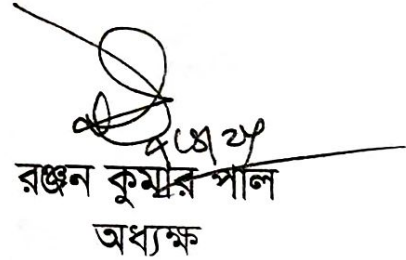 রঞ্জন কুমার পাল
অধ্যক্ষ